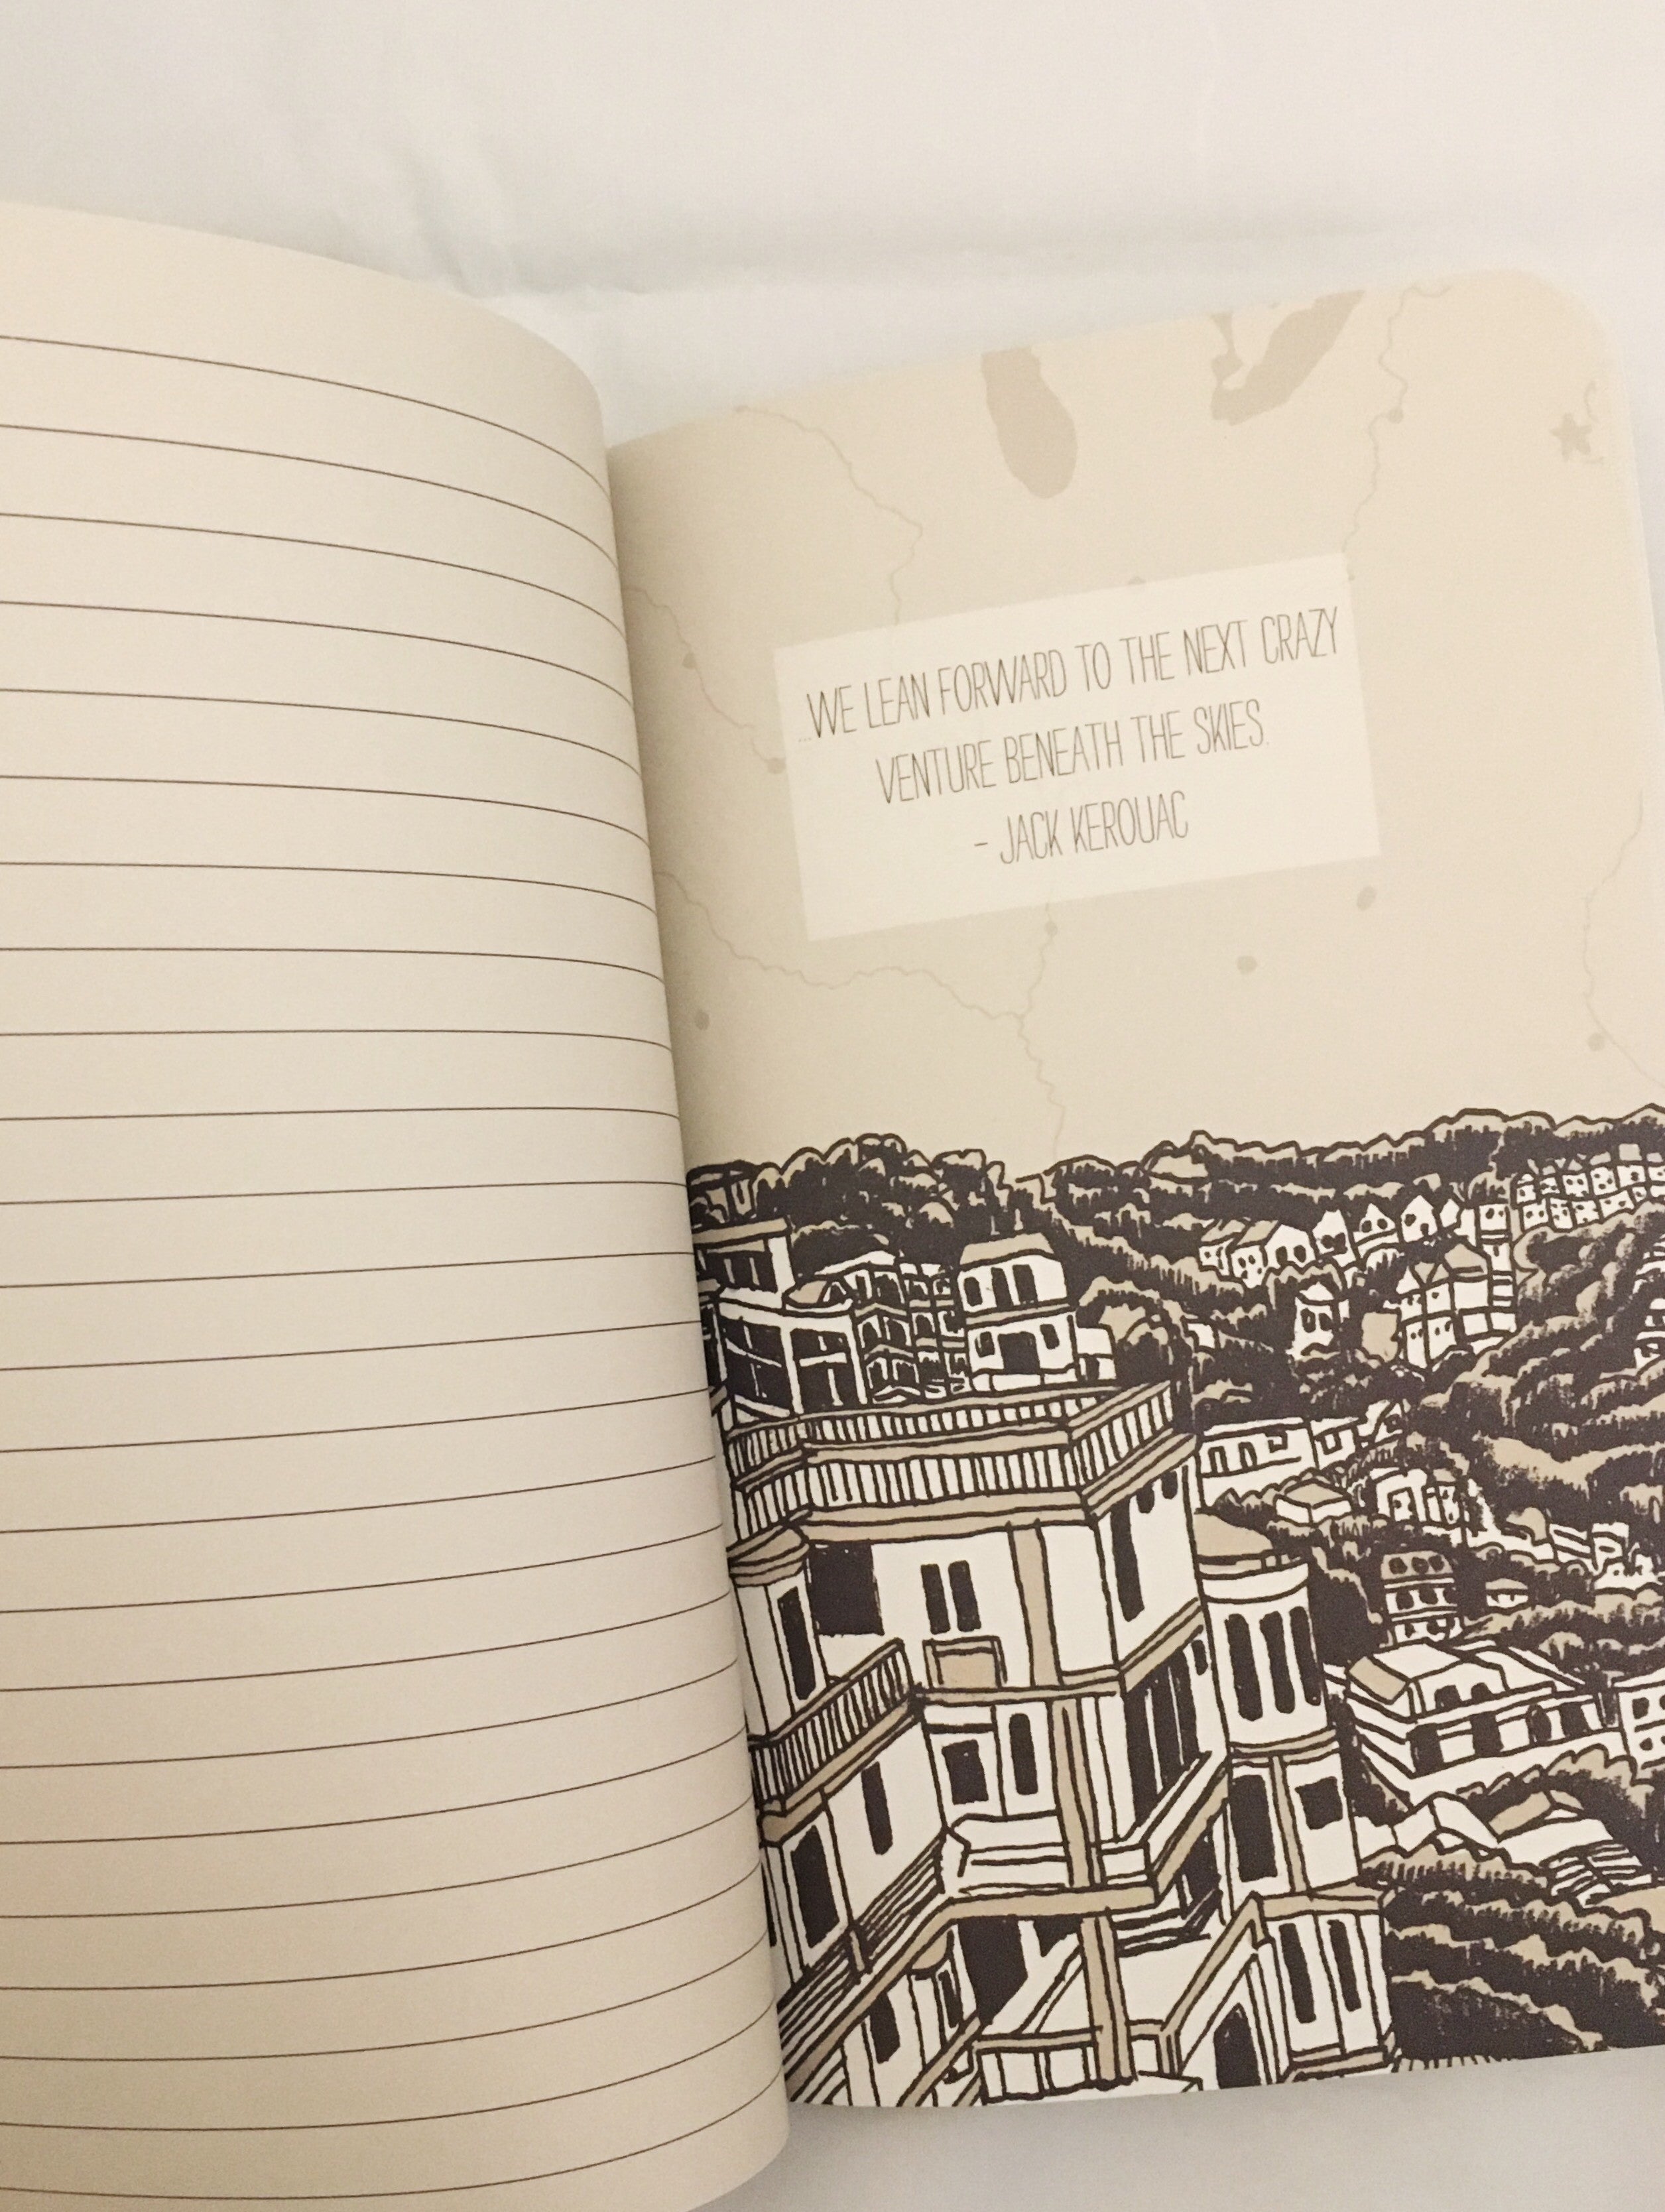 ...WE LEAN FORWARD TO THE NEXT CRAZY
VENTURE BENEATH THE SKIES.
- JACK KEROUAC